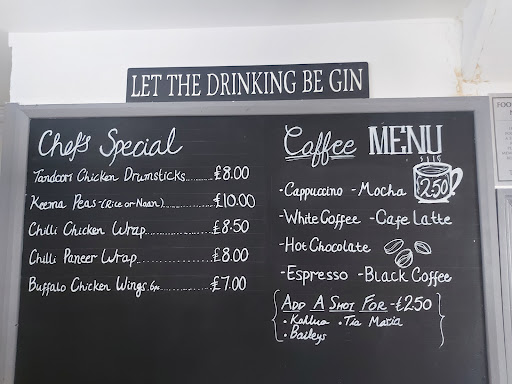 LET THE DRINKING BE GIN
Chef's Special
Tandoori Chicken Drumsticks........£8.00
Keema Peas-(Rice or Naan)............£10.00
Chilli Chicken Wrap................£8.50
Chilli Paneer Wrap.................£8.00
Buffalo Chicken Wings 6pc..............£7.00
Coffee MENU
2.50
-Cappuccino -Mocha
-White Coffee -Cafe Latte
-Hot Chocolate
-Espresso -Black Coffee
ADD A SHOT FOR -£2.50
• Kahlua • Tia Maria
• Baileys